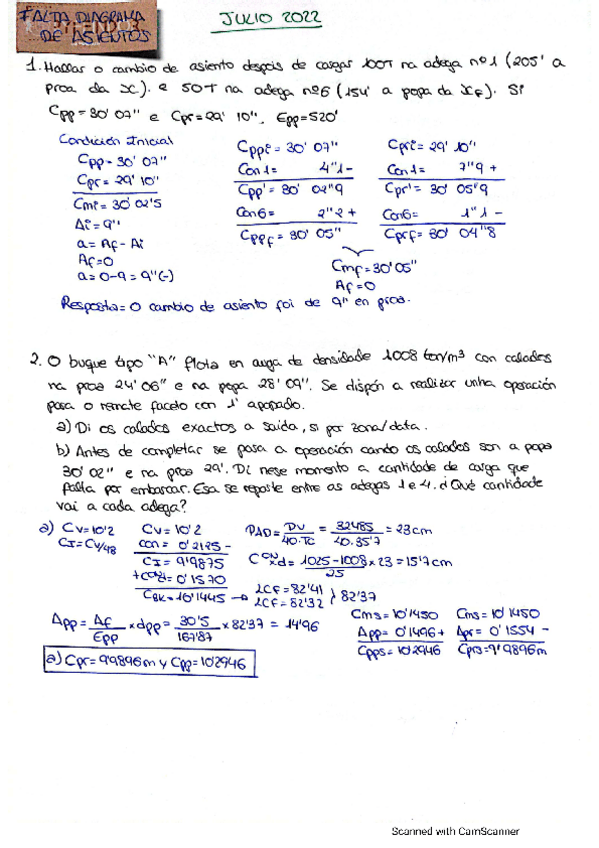 FALTA DIAGRAMA
DE ASIENTOS
JULIO 2022
1. Hallar o cambio de asiento despois de cargar 100T na adega nº1 (205' a
proa da X). e 50T na adega nº6 (154' a popa da XF). Si
Cpp = 30' 07'' e Cpr = 29' 10''. Epp = 520'
Condición Inicial
Cpp = 30' 07''
Cpr = 29' 10''
Cmi = 30' 02'5
Ai = 9''
a = Af - Ai
Af = 0
a = 0 - 9 = 9'' (-)
Cppi = 30' 07''
Con1 = 4''1 -
Cpp' = 30' 02''9
Con6 = 2''2 +
Cppf = 30' 05''
Cpri = 29' 10''
Con1 = 7''9 +
Cpr' = 30' 05''9
Con6 = 1''1 -
Cprf = 30' 04''8
Cmf = 30' 05''
Af = 0
Resposta = O cambio de asiento foi de 9'' en proa.
2. O buque tipo "A" flota en auga de densidade 1008 ton/m³ con calados
na proa 24' 06'' e na popa 28' 09''. Se dispón a realizar unha operación
para o remate facelo con 1' apopado.
a) Di os calados exactos a saída, si por zona/data.
b) Antes de completar se pasa a operación cando os calados son a popa
30' 02'' e na proa 29'. Di nese momento a cantidade de carga que
falta por embarcar. Esa se reposte entre as adegas 1 e 4. ¿Qué cantidade
vai a cada adega?
a) Cv = 10'2
CI = Cv/48
Cv = 10'2
con = 0'2125 -
CI = 9'9875
= 0'1570
CBK = 10'1445 → LCF = 82'41
LCF = 82'32 } 82'37
PAD = Dv / 40·Tc = 32485 / 40·35'7 = 23 cm
= 1025 - 1008 / 25 × 23 = 15'7 cm
App = Af / Epp × dpp = 30'5 / 167'87 × 82'37 = 14'96
Cms = 10'1450
App = 0'1496 +
Cpps = 10'2946
Cms = 10'1450
Apr = 0'1554 -
Cprs = 9'9896m
a) Cpr = 9'9896 m y Cpp = 10'2946
Scanned with CamScanner